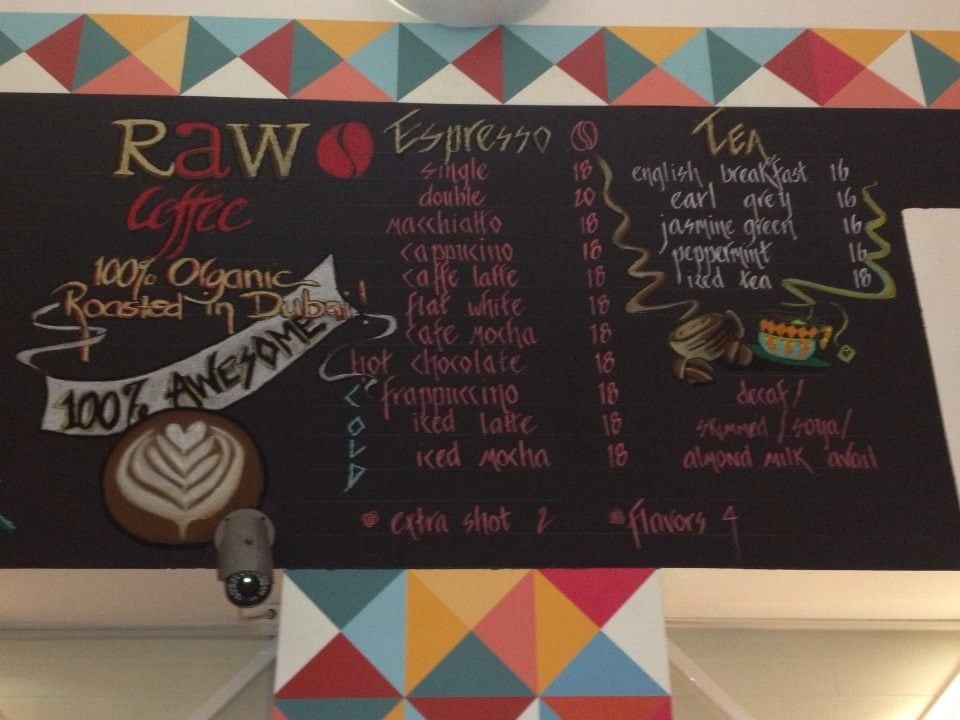 RaW
Coffee
100% Organic
Roasted in Dubai!
100% AWESOME
Espresso
single 18
double 20
macchiatto 18
cappucino 18
caffe latte 18
flat white 18
cafe mocha 18
hot chocolate 18
COLD
frappuccino 18
iced latte 18
iced mocha 18
extra shot 2
flavors 4
Tea
english breakfast 16
earl grey 16
jasmine green 16
peppermint 16
iced tea 18
decaf/
skimmed/soya/
almond milk avail